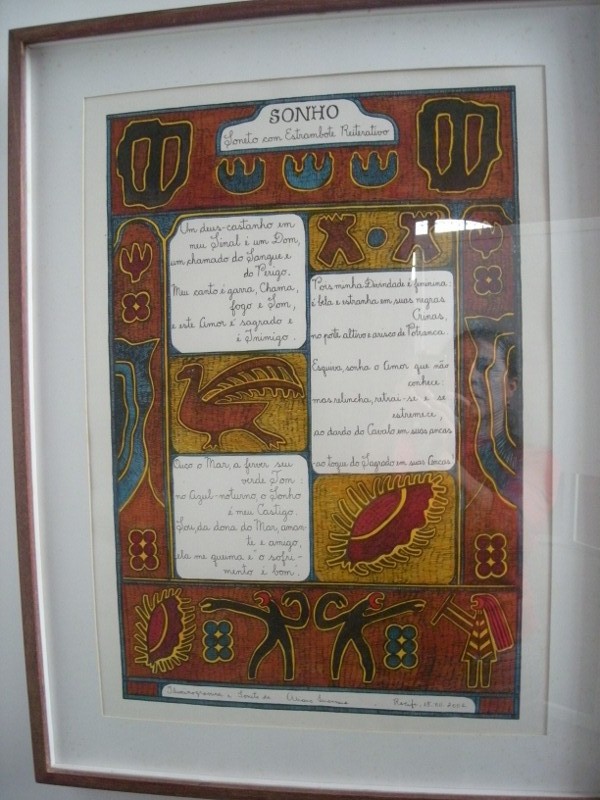 SONHO
Soneto com Estrambote Reiterativo
Um deus-castanho em
meu Sinal é um Dom,
um chamado do Sangue e
do Perigo.
Meu canto é garra, Chama,
fogo e Som,
e este Amor é sagrado e
é Inimigo.
Ouço o Mar, a ferver seu
verde Tom:
no Azul-noturno, o Sonho
é meu Castigo.
Sou, da dona do Mar, aman-
te e amigo,
ela me queima e o sofri-
mento é bom.
Pois minha Divindade é feminina:
é bela e estranha em suas negras
Crinas,
no pote altivo e arisco de Potranca.
Esquiva, sonha o Amor que não
conhece:
mas relincha, retrai-se e se
estremece,
ao dardo do Cavalo em suas ancas
ao toque do Sagrado em suas Ancas!
Iluminogravura e Soneto de
Recife, 15.XI.